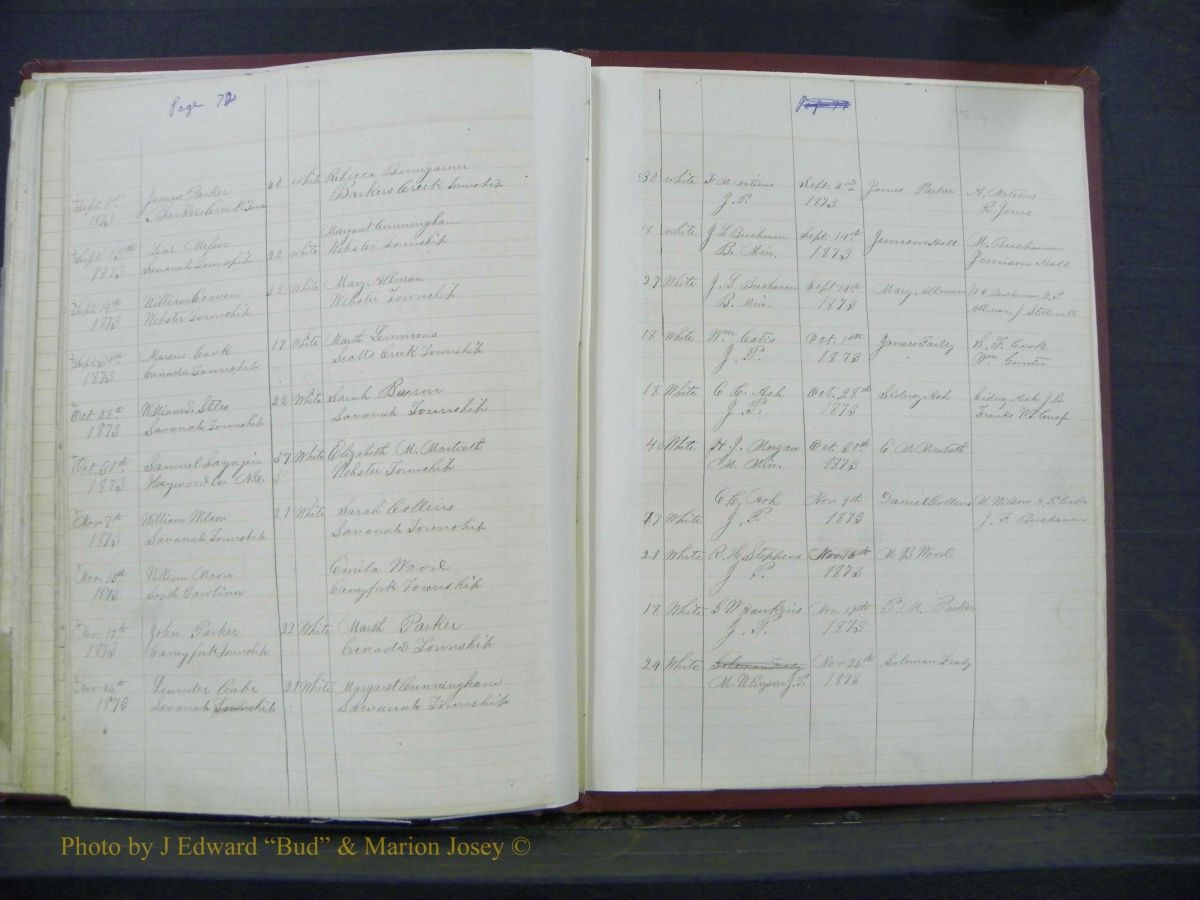 Page 72
Sept 1st James Parker 60 white Rebecca Bumgarner
1873 Barkers Creek Town Barkers Creek Township
Sept 13th Messer 22 white Margaret Cunningham
1873 Savanah Township Webster Township
Sept 19th William Cowen 32 White Mary Allman
1873 Webster Township Webster Township
Sept Marcus Cook 19 White Marth Lemmons
1873 Canada Township Scotts Creek Township
Oct. 28th William T. Stles 22 White Sarah
1873 Savanah Township Savanah Township
Oct. 30th Samuel 57 White Elizabeth M. Monteeth
1873 Haywood Co N.C. Webster Township
Nov 8th William Wilson 21 White Sarah Collins
1873 Savanah Township Savanah Township
Nov. 15th William Moore Emila Wood
1873 South Carolina Caneyfork Township
Nov 17th John Parker 22 White Marth Parker
1873 Caneyfork Township Canada Township
Nov. 26th Leander Cabe 21 White Margaret Cunningham
1873 Savanah Township Savanah Township
30 white F. M. Nations Sept. 2nd James Parker A. Nations
J. P. 1873 R. Jones
18 white J L Buchanan Sept. 14th Jemison Hall M. Buchanan
B. Min. 1873 Jemison Hall
27 White J. L Buchanan Sept 19th Mary Allman
B. Min. 1873 Allman J Stillwell
18 White Wm Estis Oct. 1st James Farly B. F. Cook
J. P. 1873 Wm
18 White C. C. Ash Oct. 28th Sidney Ash Sidney Ash J B
J. P. 1873 Franks
40 White H. J. Morgan Oct 30th E M Monteeth
M. Min. 1873
C. C. Ash Nov 9th Daniel Collins M Wilson
17 White J. P. 1873 J. F. Buchanan
21 White R. H. Stephens Nov 16th M B Wood
J P. 1873
18 White G W Hawkins Nov. 17th P. M. Parker
J. P. 1873
24 White Soloman Frady Nov 26th Soloman Frady
M. N Bryson J. P. 1873
Photo by J Edward “Bud” & Marion Josey ©